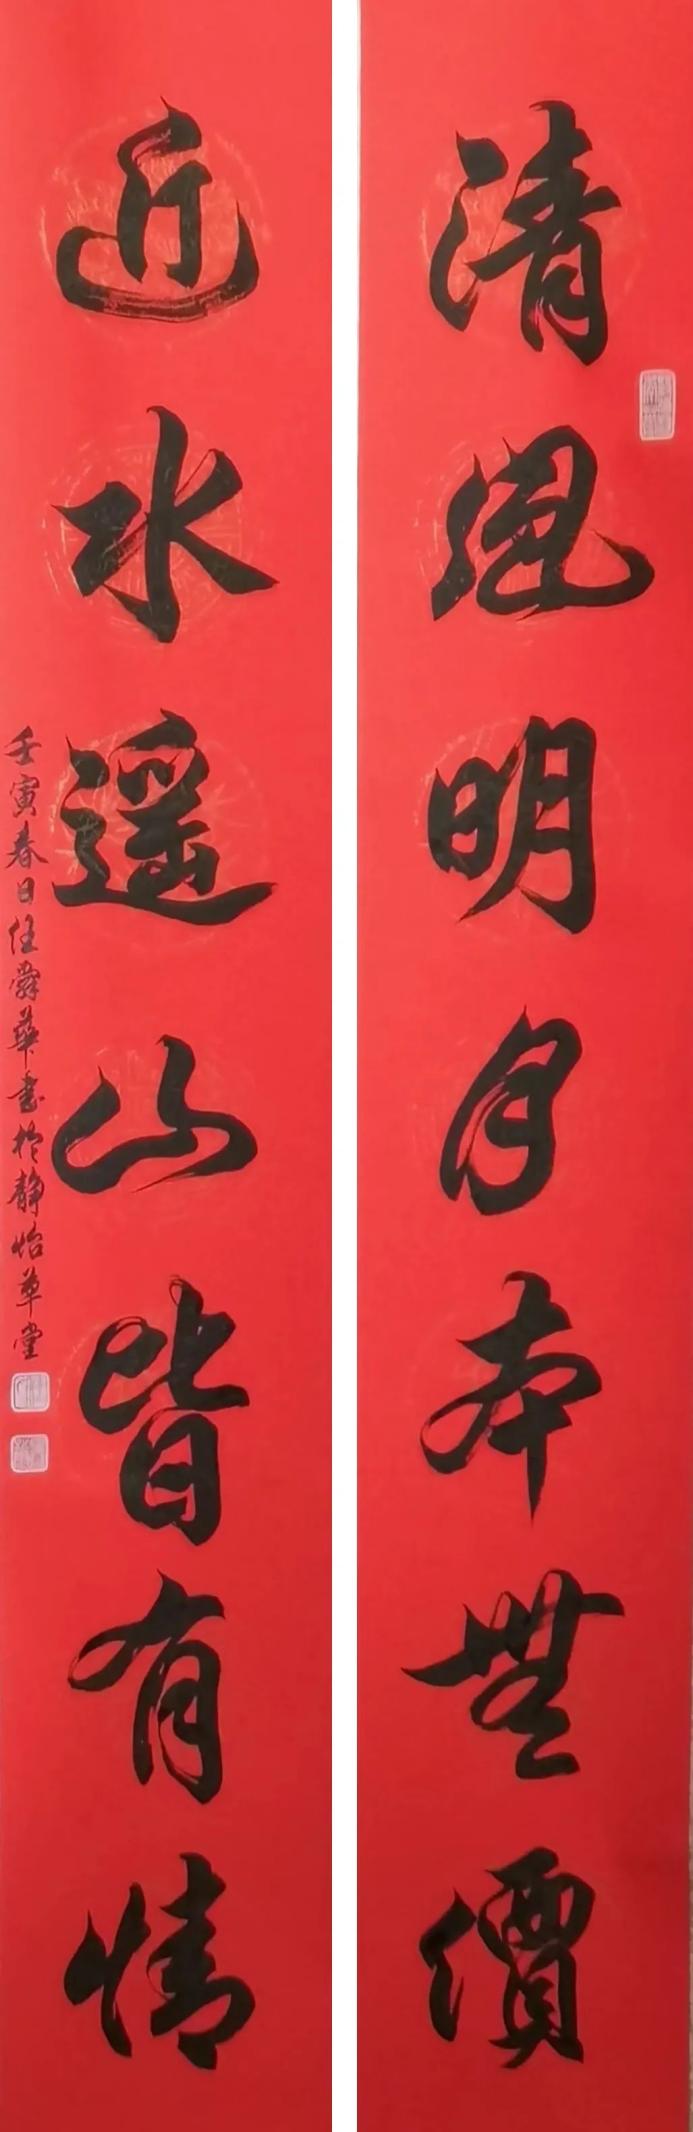 清風明月本無價
近水遥山皆有情
壬寅春日任舜華書於靜怡草堂